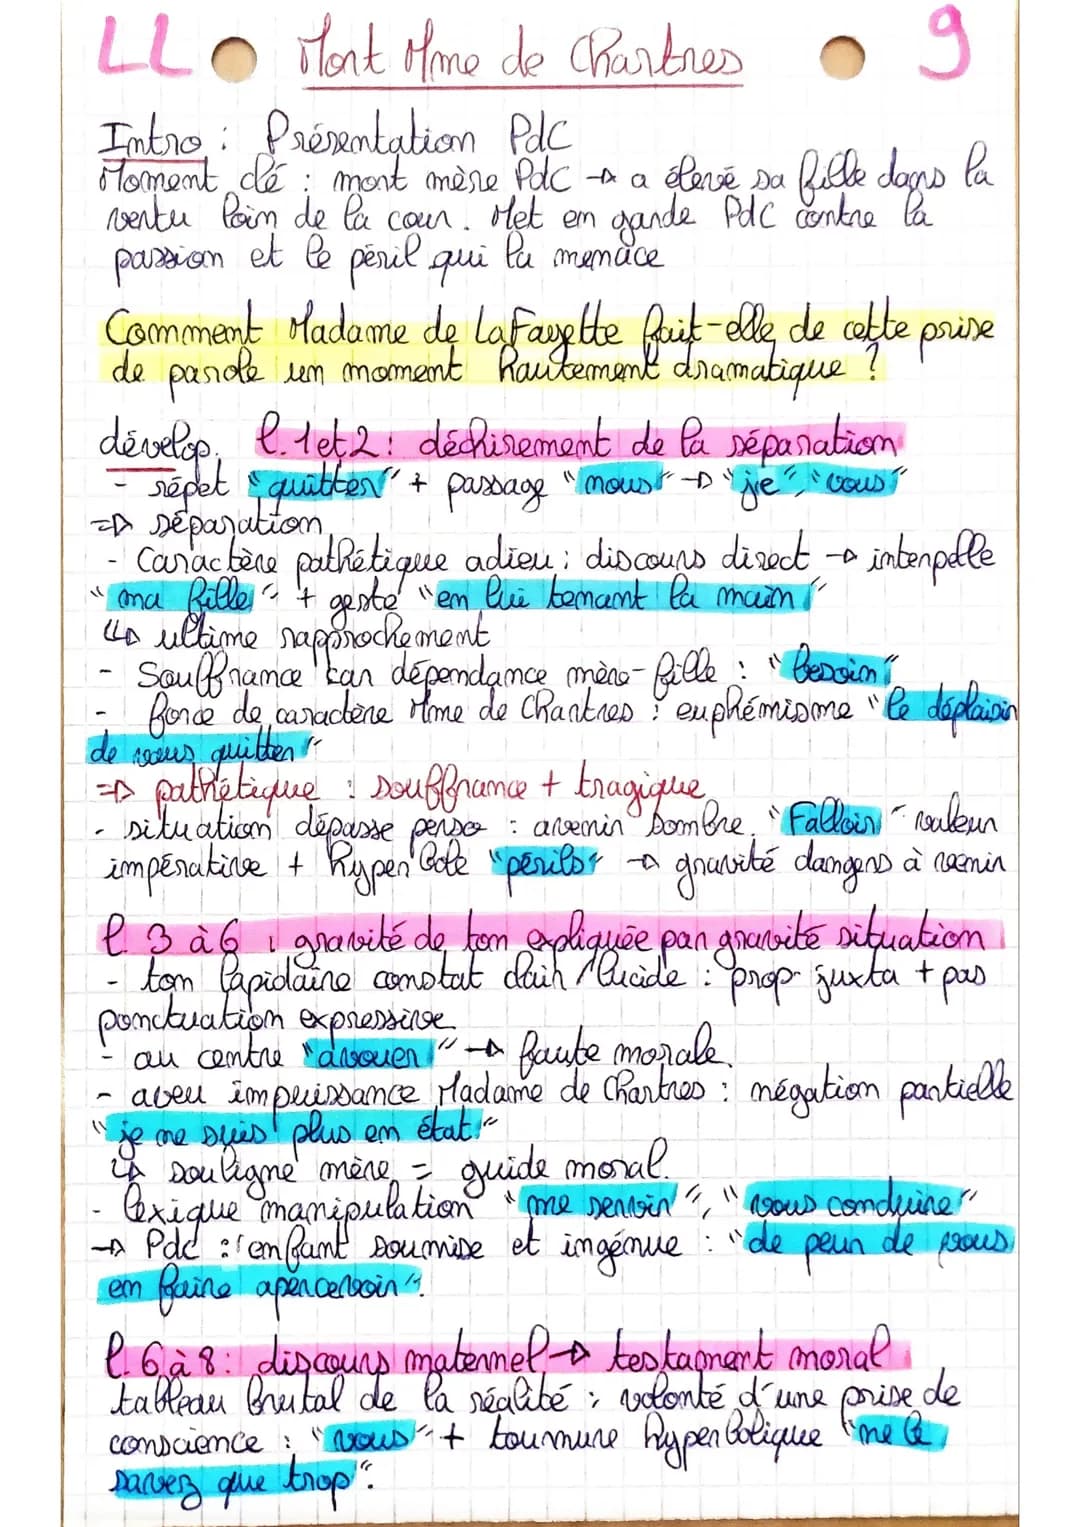 LL Mort Mme de Chartres 9
Intro : Présentation PdC
Moment clé : mort mère PdC → a élevé sa fille dans la
vertu loin de la cour. Met en garde PdC contre la
passion et le péril qui la menace
Comment Madame de LaFayette fait-elle de cette prise
de parole un moment hautement dramatique ?
dévelop. l. 1 et 2 : déchirement de la séparation
- répet "quitter" + passage "nous" → "je", "vous"
⇒ séparation
- Caractère pathétique adieu : discours direct → interpelle
"ma fille" + geste "en lui tenant la main"
↳ ultime rapprochement
- Souffrance car dépendance mère-fille : "besoin"
- force de caractère Mme de Chartres : euphémisme "le déplaisir
de vous quitter"
⇒ pathétique : souffrance + tragique
- situation dépasse perso : avenir sombre. "Falloir" valeur
impérative + hyperbole "périls" → gravité dangers à venir
l. 3 à 6 : gravité de ton expliquée par gravité situation
- ton lapidaire constat clair/lucide : prop juxta + pas
ponctuation expressive
- au centre "avouer" → faute morale.
- aveu impuissance Madame de Chartres : négation partielle
"je ne suis plus en état"
↳ souligne mère = guide moral.
- lexique manipulation "me servir", "vous conduire"
→ PdC : enfant soumise et ingénue : "de peur de vous
en faire apercevoir".
l. 6 à 8 : discours maternel → testament moral
tableau brutal de la réalité : volonté d'une prise de
conscience : "vous" + tournure hyperbolique "ne le
savez que trop".